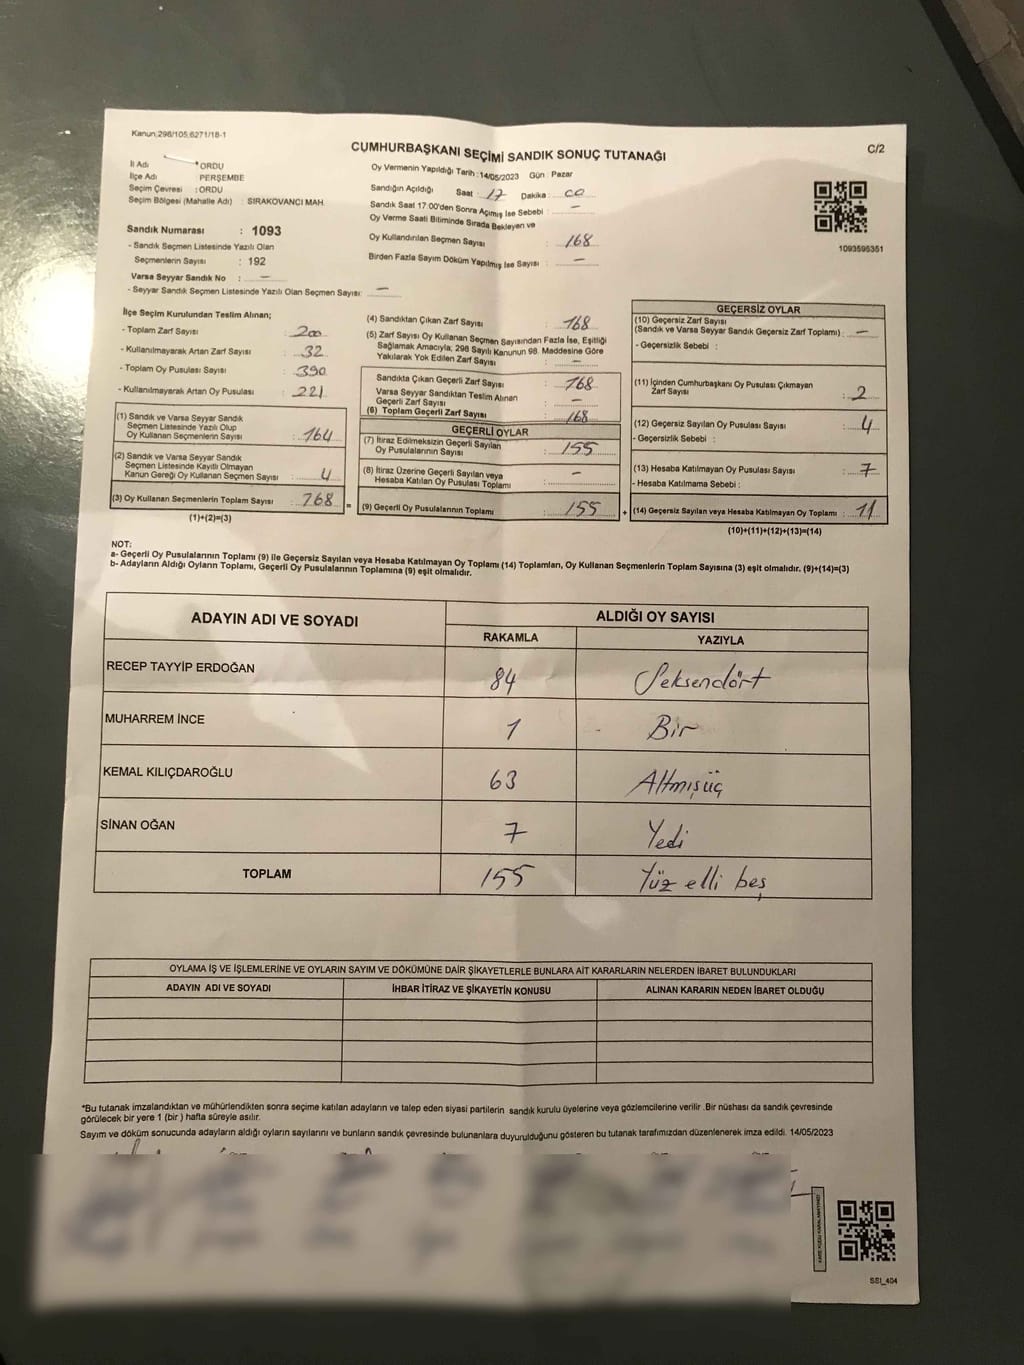 Kanun;298/105;6271/18-1
CUMHURBAŞKANI SEÇİMİ SANDIK SONUÇ TUTANAĞI
C/2
İl Adı : ORDU
İlçe Adı PERŞEMBE
Seçim Çevresi : ORDU
Seçim Bölgesi (Mahalle Adı) : SIRAKOVANCI MAH.
Oy Vermenin Yapıldığı Tarih :14/05/2023 Gün : Pazar
Sandığın Açıldığı Saat : 17 Dakika : 00
Sandık Saat 17:00'den Sonra Açımış İse Sebebi : —
Oy Verme Saati Bitiminde Sırada Bekleyen ve
Oy Kullandırılan Seçmen Sayısı : 168
Birden Fazla Sayım Döküm Yapılmış İse Sayısı : —
1093596351
Sandık Numarası : 1093
- Sandık Seçmen Listesinde Yazılı Olan
Seçmenlerin Sayısı : 192
Varsa Seyyar Sandık No : —
- Seyyar Sandık Seçmen Listesinde Yazılı Olan Seçmen Sayısı: —
İlçe Seçim Kurulundan Teslim Alınan;
- Toplam Zarf Sayısı : 200
- Kullanılmayarak Artan Zarf Sayısı : 32
- Toplam Oy Pusulası Sayısı : 390
- Kullanılmayarak Artan Oy Pusulası : 221
(1) Sandık ve Varsa Seyyar Sandık
Seçmen Listesinde Yazılı Olup
Oy Kullanan Seçmenlerin Sayısı : 164
(2) Sandık ve Varsa Seyyar Sandık
Seçmen Listesinde Kayıtlı Olmayan
Kanun Gereği Oy Kullanan Seçmen Sayısı : 4
(3) Oy Kullanan Seçmenlerin Toplam Sayısı : 168 =
(1)+(2)=(3)
(4) Sandıktan Çıkan Zarf Sayısı : 168
(5) Zarf Sayısı Oy Kullanan Seçmen Sayısından Fazla İse, Eşitliği
Sağlamak Amacıyla; 298 Sayılı Kanunun 98. Maddesine Göre
Yakılarak Yok Edilen Zarf Sayısı : —
Sandıkta Çıkan Geçerli Zarf Sayısı : 168
Varsa Seyyar Sandıktan Teslim Alınan
Geçerli Zarf Sayısı : —
(6) Toplam Geçerli Zarf Sayısı : 168
GEÇERLİ OYLAR
(7) İtiraz Edilmeksizin Geçerli Sayılan
Oy Pusulalarının Sayısı : 155
(8) İtiraz Üzerine Geçerli Sayılan veya
Hesaba Katılan Oy Pusulası Toplamı : —
(9) Geçerli Oy Pusulalarının Toplamı : 155 +
GEÇERSİZ OYLAR
(10) Geçersiz Zarf Sayısı
(Sandık ve Varsa Seyyar Sandık Geçersiz Zarf Toplamı) : —
- Geçersizlik Sebebi :
(11) İçinden Cumhurbaşkanı Oy Pusulası Çıkmayan
Zarf Sayısı : 2
(12) Geçersiz Sayılan Oy Pusulası Sayısı : 4
- Geçersizlik Sebebi :
(13) Hesaba Katılmayan Oy Pusulası Sayısı : 7
- Hesaba Katılmama Sebebi :
(14) Geçersiz Sayılan veya Hesaba Katılmayan Oy Toplamı : 11
(10)+(11)+(12)+(13)=(14)
NOT:
a- Geçerli Oy Pusulalarının Toplamı (9) ile Geçersiz Sayılan veya Hesaba Katılmayan Oy Toplamı (14) Toplamları, Oy Kullanan Seçmenlerin Toplam Sayısına (3) eşit olmalıdır. (9)+(14)=(3)
b- Adayların Aldığı Oyların Toplamı, Geçerli Oy Pusulalarının Toplamına (9) eşit olmalıdır.
ADAYIN ADI VE SOYADI ALDIĞI OY SAYISI
RAKAMLA YAZIYLA
RECEP TAYYİP ERDOĞAN 84 Seksendört
MUHARREM İNCE 1 Bir
KEMAL KILIÇDAROĞLU 63 Altmışüç
SİNAN OĞAN 7 Yedi
TOPLAM 155 Yüz elli beş
OYLAMA İŞ VE İŞLEMLERİNE VE OYLARIN SAYIM VE DÖKÜMÜNE DAİR ŞİKAYETLERLE BUNLARA AİT KARARLARIN NELERDEN İBARET BULUNDUKLARI
ADAYIN ADI VE SOYADI İHBAR İTİRAZ VE ŞİKAYETİN KONUSU ALINAN KARARIN NEDEN İBARET OLDUĞU
*Bu tutanak imzalandıktan ve mühürlendikten sonra seçime katılan adayların ve talep eden siyasi partilerin sandık kurulu üyelerine veya gözlemcilerine verilir .Bir nüshası da sandık çevresinde
görülecek bir yere 1 (bir ) hafta süreyle asılır.
Sayım ve döküm sonucunda adayların aldığı oyların sayılarını ve bunların sandık çevresinde bulunanlara duyurulduğunu gösteren bu tutanak tarafımızdan düzenlenerek imza edildi. 14/05/2023
KARE KODU KARALAMAYINIZ!
SSI_404